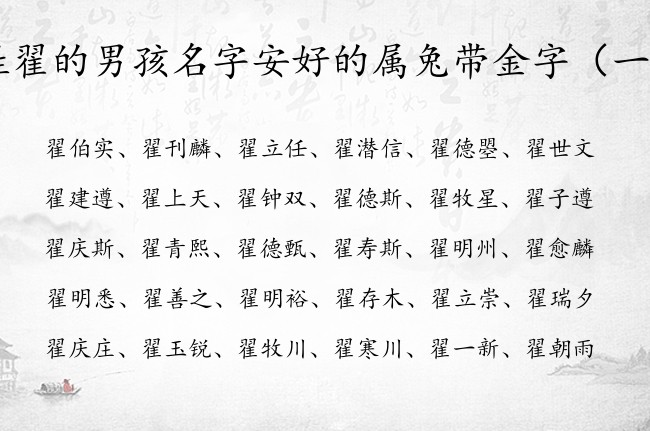 姓翟的男孩名字安好的属兔带金字（一
翟伯实、翟刊麟、翟立任、翟潜信、翟德曌、翟世文
翟建遵、翟上天、翟钟双、翟德斯、翟牧星、翟子遵
翟庆斯、翟青熙、翟德甄、翟寿斯、翟明州、翟愈麟
翟明悉、翟善之、翟明裕、翟存木、翟立崇、翟瑞夕
翟庆庄、翟玉锐、翟牧川、翟寒川、翟一新、翟朝雨